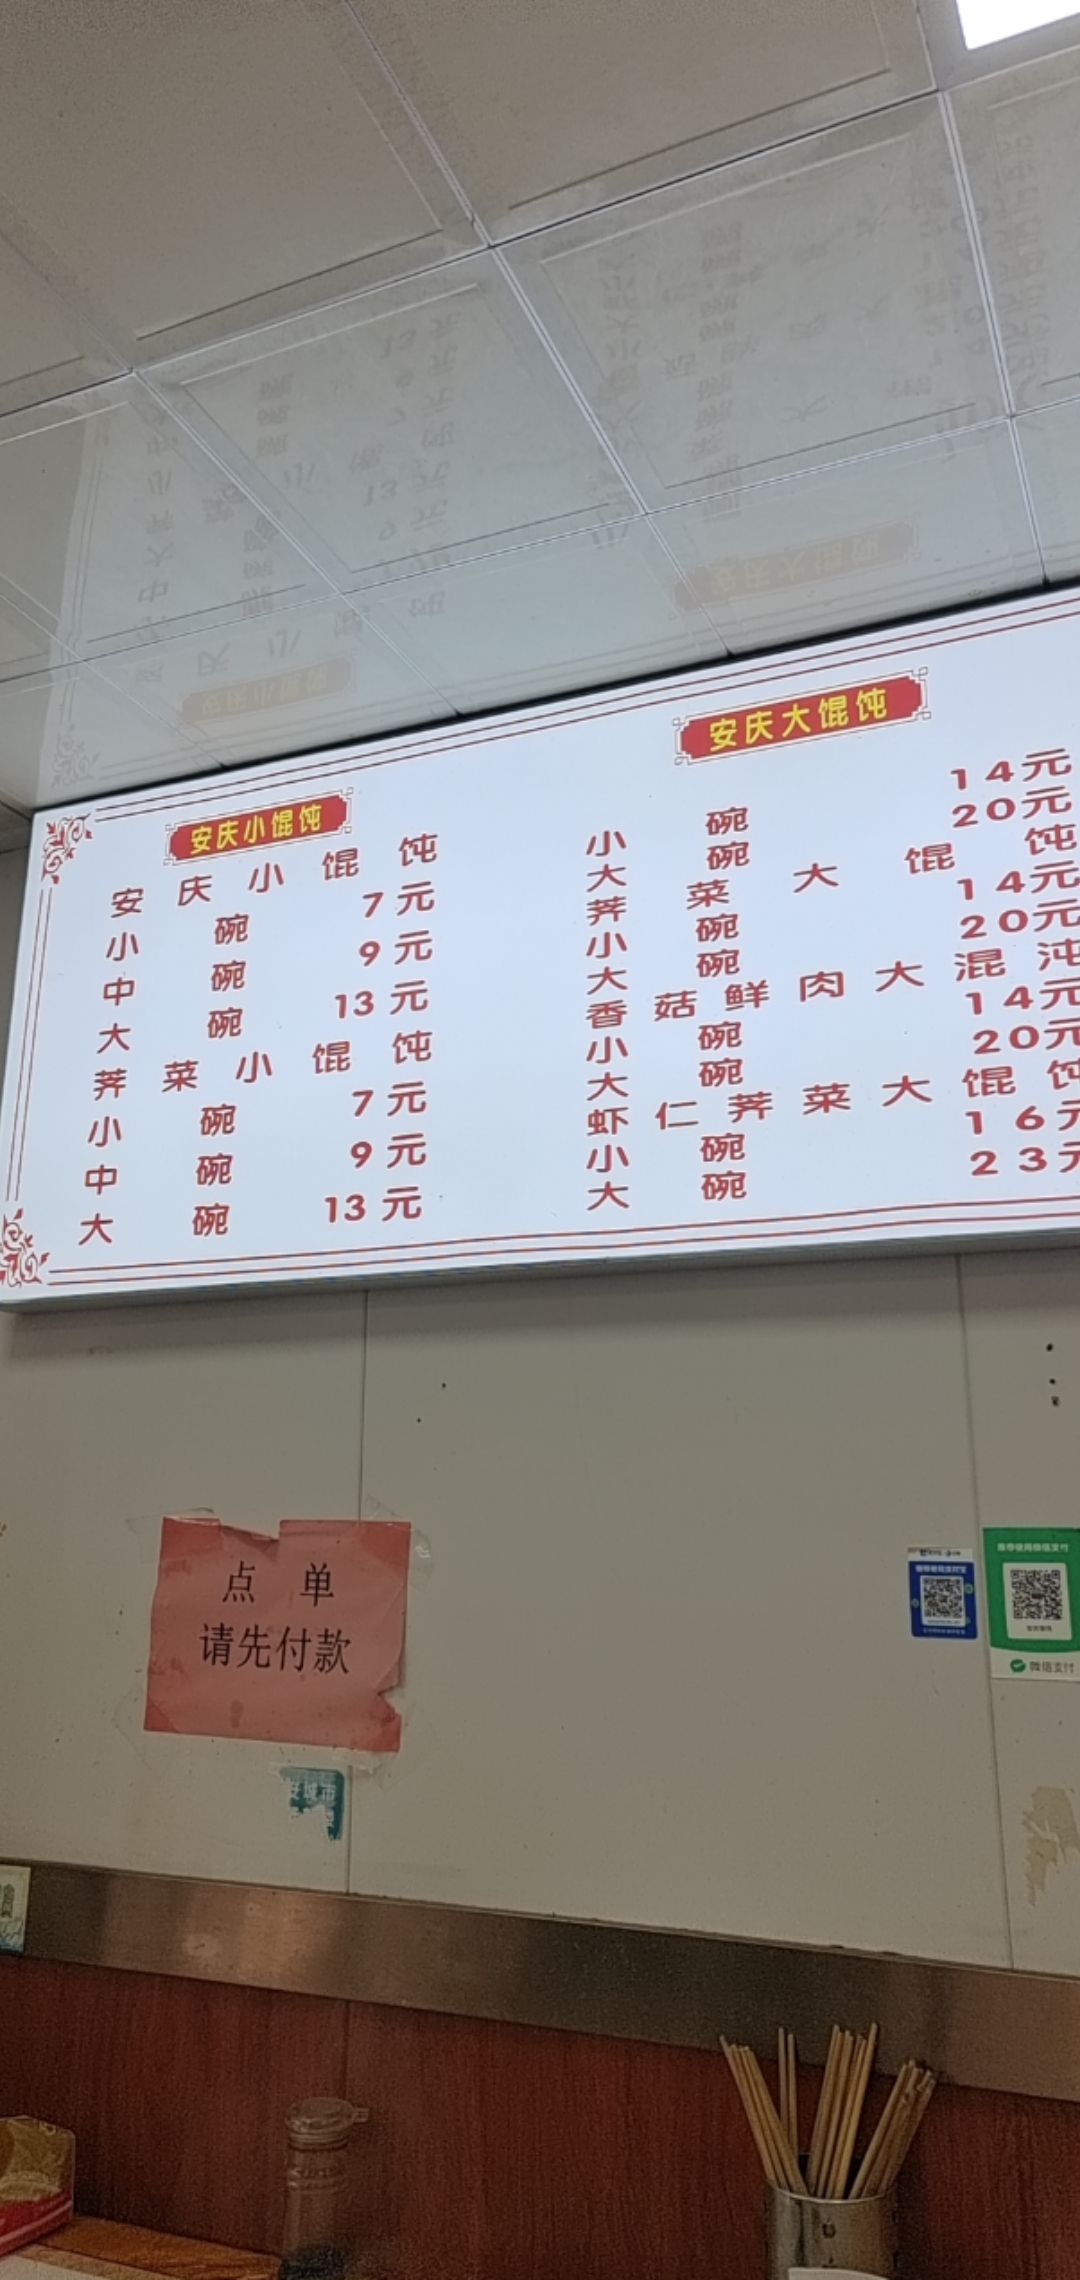 安庆小馄饨
安庆小馄饨
小碗 7元
中碗 9元
大碗 13元
荠菜小馄饨
小碗 7元
中碗 9元
大碗 13元
安庆大馄饨
小碗 14元
大碗 20元
荠菜大馄饨
小碗 14元
大碗 20元
香菇鲜肉大混沌
小碗 14元
大碗 20元
虾仁荠菜大馄饨
小碗 16元
大碗 23元
点单
请先付款
推荐使用支付宝
推荐使用微信支付
微信支付